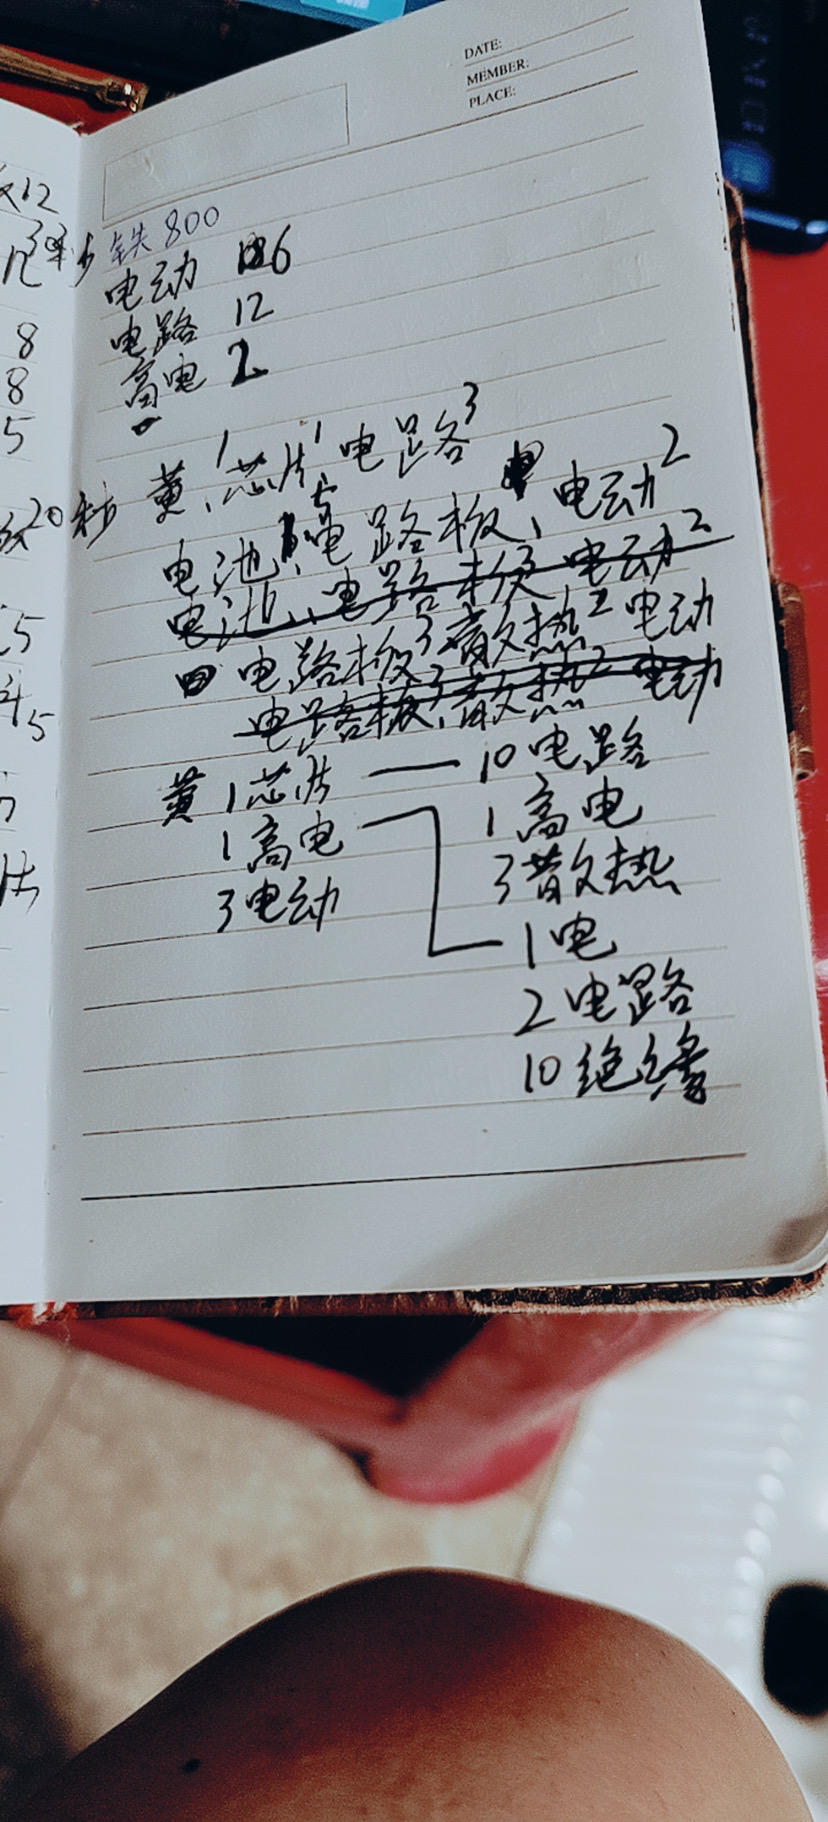 DATE:
MEMBER:
PLACE:
12
8
8
5
20秒
5
5
铁800
电动 6
电路 12
高电 2
黄1、芯片1 电路3
电池1、电路板5、电动2
电池1、电路板3、电动2
电路板3、散热2 电动
电路板3、散热2 电动
黄 1芯片 — 10电路
1高电 1高电
3电动 3散热
1电
2电路
10绝缘